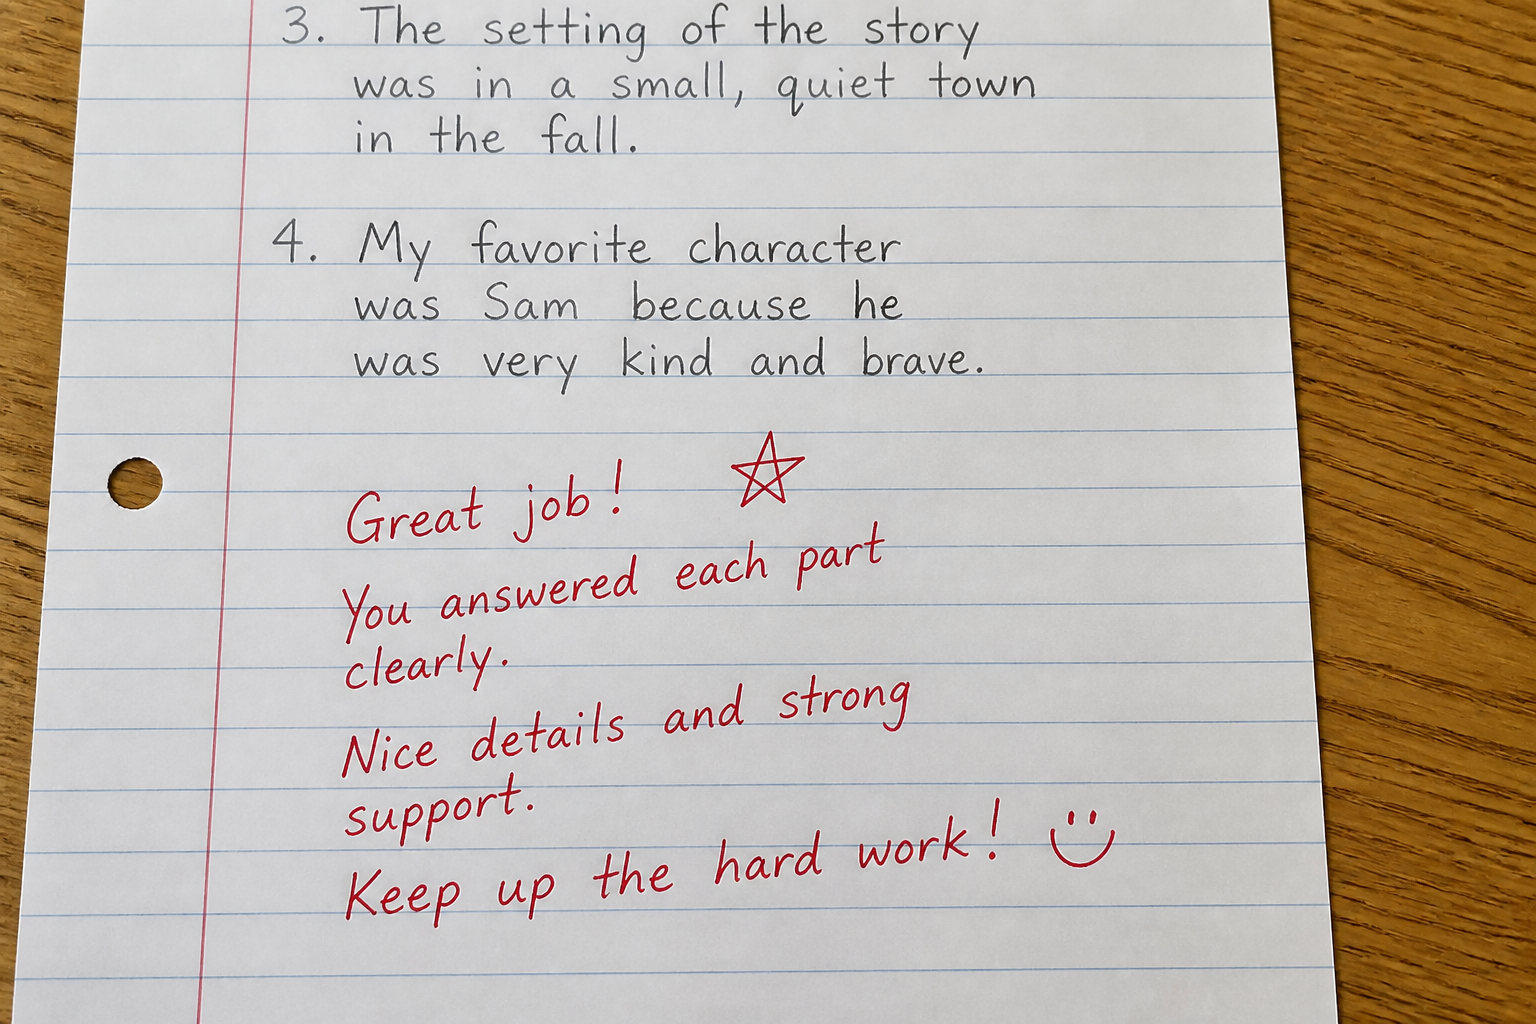 3. The setting of the story
was in a small, quiet town
in the fall.
4. My favorite character
was Sam because he
was very kind and brave.
Great job!
You answered each part
clearly.
Nice details and strong
support.
Keep up the hard work!